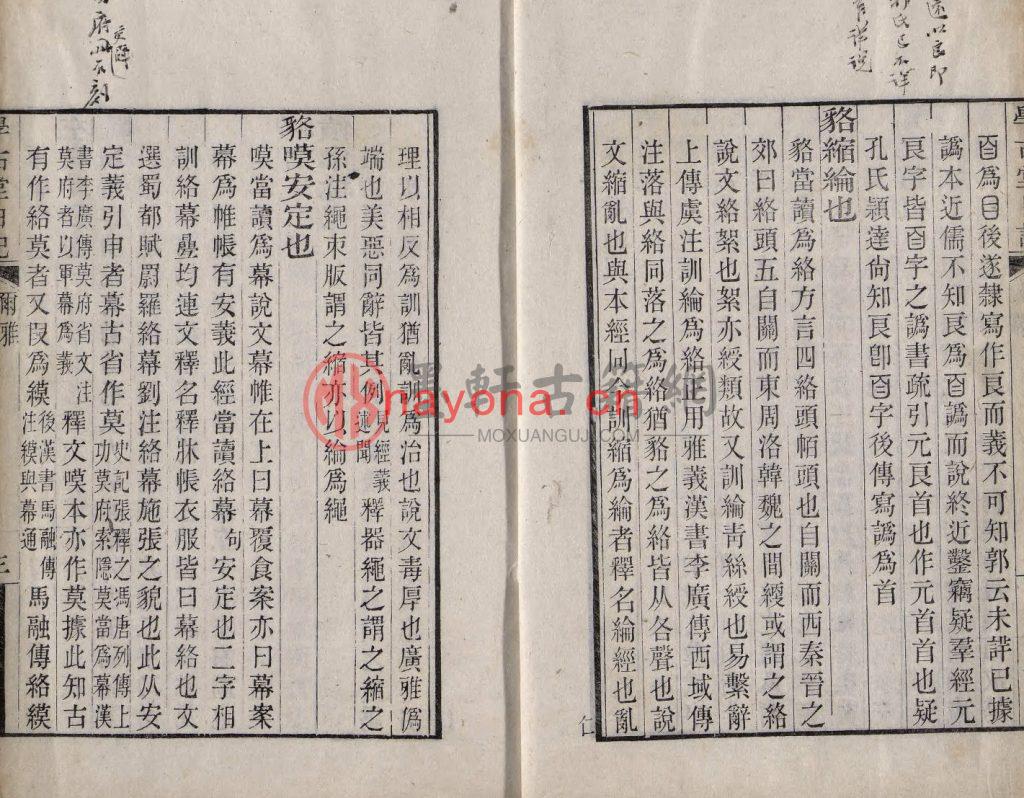 遠以良即
郭氏已不詳
𦣻為目後遂隸寫作㫐而義不可知郭云未詳已據
譌本近儒不知㫐為𦣻譌而說終近鑿竊疑羣經元
㫐字皆𦣻字之譌書疏引元㫐首也作元首首也疑
孔氏穎達尙知㫐卽𦣻字後傳寫譌為首
貉縮綸也
貉當讀爲絡方言四絡頭帞頭也自關而西秦晉之
郊曰絡頭五自關而東周洛韓魏之間綆或謂之絡
說文絡絮也絮亦綬類故又訓綸靑絲綬也易繫辭
上傳虞注訓綸爲絡正用雅義漢書李廣傳西域傳
注落與絡同落之爲絡猶貉之爲絡皆从各聲也說
文縮亂也與本經同今訓縮爲綸者釋名綸經也亂
理以相反爲訓猶亂訓爲治也說文毒厚也廣雅僞
端也美惡同辭皆其例 釋器繩之謂之縮之
孫注繩束版謂之縮亦以綸爲繩
貉嗼安定也
嗼當讀爲幕說文幕帷在上曰幕覆食案亦曰幕案
幕爲帷帳有安義此經當讀絡幕句安定也二字相
訓絡幕疊均連文釋名釋牀帳衣服皆曰幕絡也文
選蜀都賦罻羅絡幕劉注絡幕施張之貌也此从安
定義引申者幕古省作莫史記張釋之馮唐列傳上功莫府索隱莫當爲幕漢
書李廣傳莫府省文注莫府者以軍幕爲義釋文嗼本亦作莫據此知古
有作絡莫者又叚爲縸後漢書馬融傳注縸與幕通馬融傳絡縸
學古堂日記
爾雅